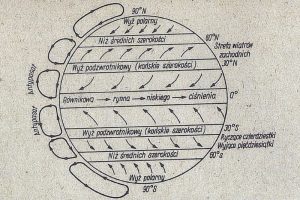 90°N
Wyż polarny
60°N
Niż średnich szerokości
Strefa wiatrów
zachodnich
Wyż podzwrotnikowy (końskie szerokości)
30°N
Antypasat
Równikowa rynna niskiego ciśnienia
0°
Antypasat
30°S
Wyż podzwrotnikowy (końskie szerokości)
Ryczące czterdziestki
Wyjące pięćdziesiątki
Niż średnich szerokości
60°S
Wyż polarny
90°S